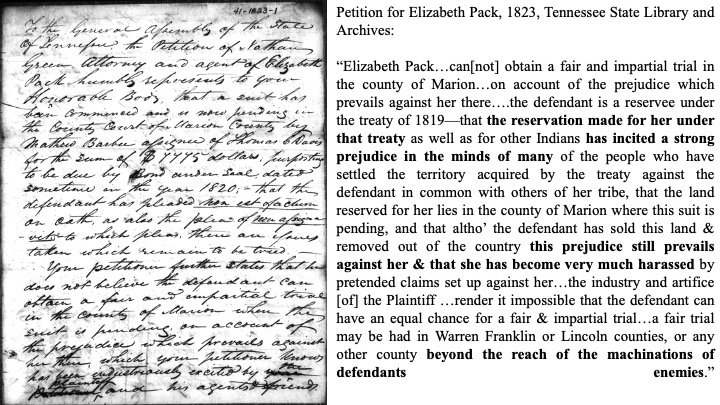 41-1823-1
To the General Assembly of the State
of Tennessee the Petition of Nathan
Green Attorney and agent of Elizabeth
Pack humbly represents to your
Honorable Body, that a suit has
been commenced and is now pending in
the County Court of Marion County by
Mathew Barber assignee of Thomas
for the sum of $ 7775 dollars, purporting
to be due by Bond under seal, dated
sometime in the year 1820; - that the
defendant has pleaded non est factum
on oath, as also the plea of non
to which pleas there are
taken which remain to be tried -
Your petitioner further states that he
does not believe the defendant can
obtain a fair and impartial trial
in the county of Marion where the
suit is pending, on account of
the prejudice which prevails against
her there, which your petitioner knows
has been industriously excited by
and his agents & friends
Petition for Elizabeth Pack, 1823, Tennessee State Library and
Archives:
“Elizabeth Pack…can[not] obtain a fair and impartial trial in
the county of Marion…on account of the prejudice which
prevails against her there….the defendant is a reservee under
the treaty of 1819—that the reservation made for her under
that treaty as well as for other Indians has incited a strong
prejudice in the minds of many of the people who have
settled the territory acquired by the treaty against the
defendant in common with others of her tribe, that the land
reserved for her lies in the county of Marion where this suit is
pending, and that altho’ the defendant has sold this land &
removed out of the country this prejudice still prevails
against her & that she has become very much harassed by
pretended claims set up against her…the industry and artifice
[of] the Plaintiff …render it impossible that the defendant can
have an equal chance for a fair & impartial trial…a fair trial
may be had in Warren Franklin or Lincoln counties, or any
other county beyond the reach of the machinations of
defendants enemies.”